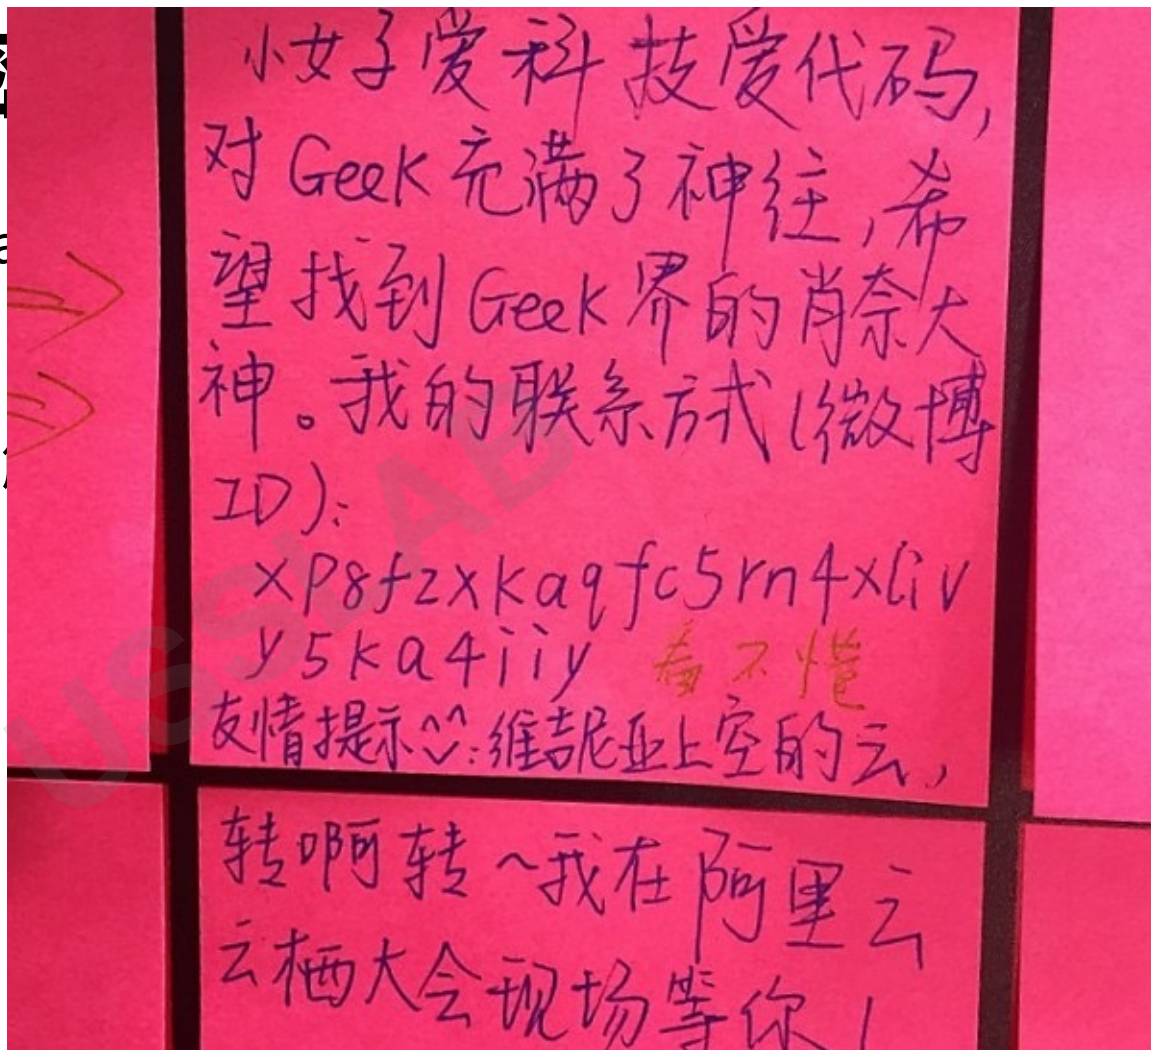 小女子爱科技爱代码,
对Geek充满了神往,希
望找到Geek界的肖奈大
神。我的联系方式(微博
ID):
xp8fzxkaqfc5rn4xliv
y5ka4iiy 看不懂
友情提示^^:维吉尼亚上空的云,
转啊转~我在阿里云
云栖大会现场等你!
USSLAB